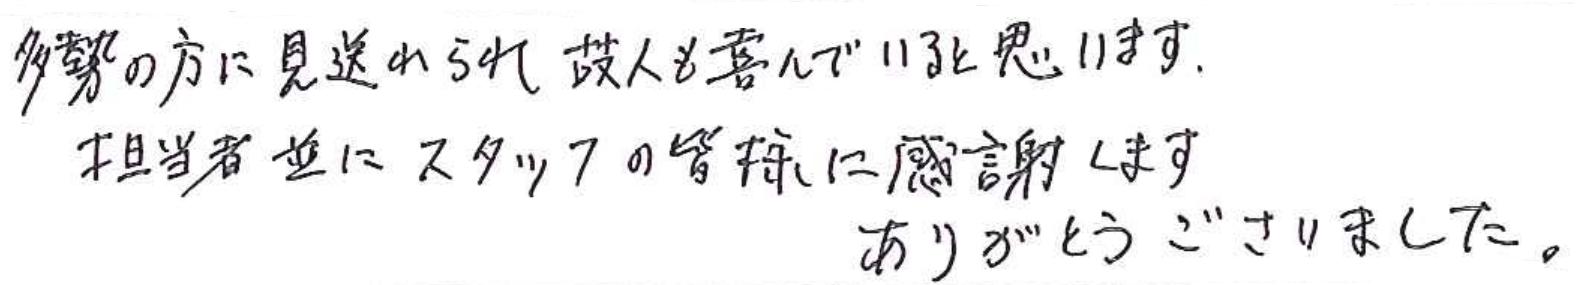 多勢の方に見送れられ 故人も喜んでいると思います.
担当者並にスタッフの皆様に感謝します
ありがとうございました。